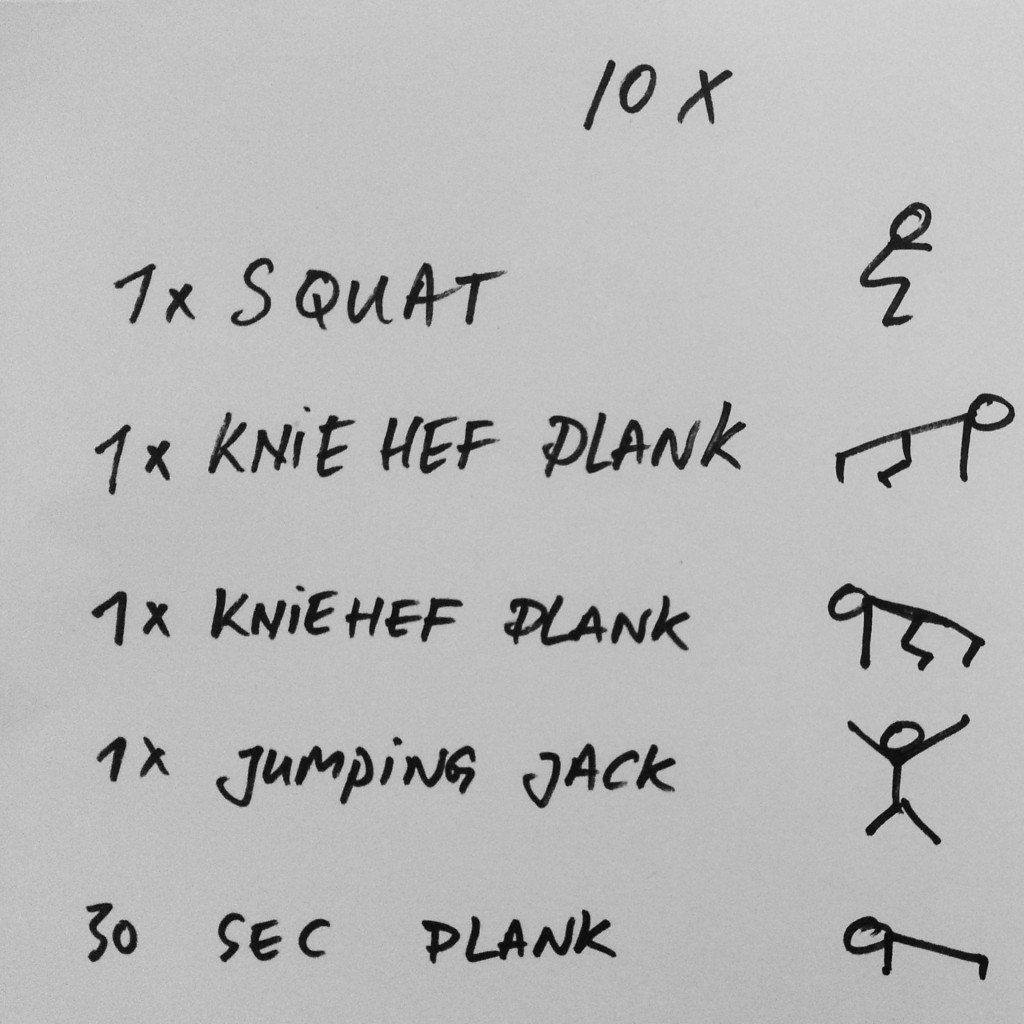 10 X
1x SQUAT
1x KNiE HEF PLANK
1x KNiEHEF PLANK
1x JUMPiNG JACK
30 SEC PLANK